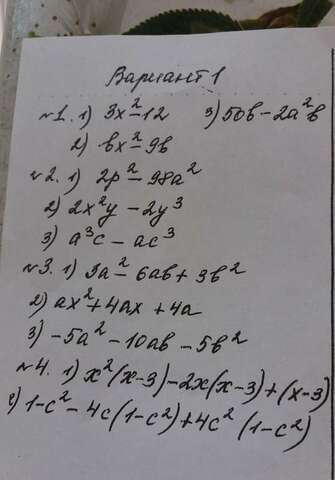 Вариант 1
№1. 1) 3x²-12 3) 50b-2a²b
2) bx²-9b
№2. 1) 2p²-98a²
2) 2x²y-2y³
3) a³c-ac³
№3. 1) 3a²-6ab+3b²
2) ax²+4ax+4a
3) -5a²-10ab-5b²
№4. 1) x²(x-3)-2x(x-3)+(x-3)
2) 1-c²-4c(1-c²)+4c²(1-c²)